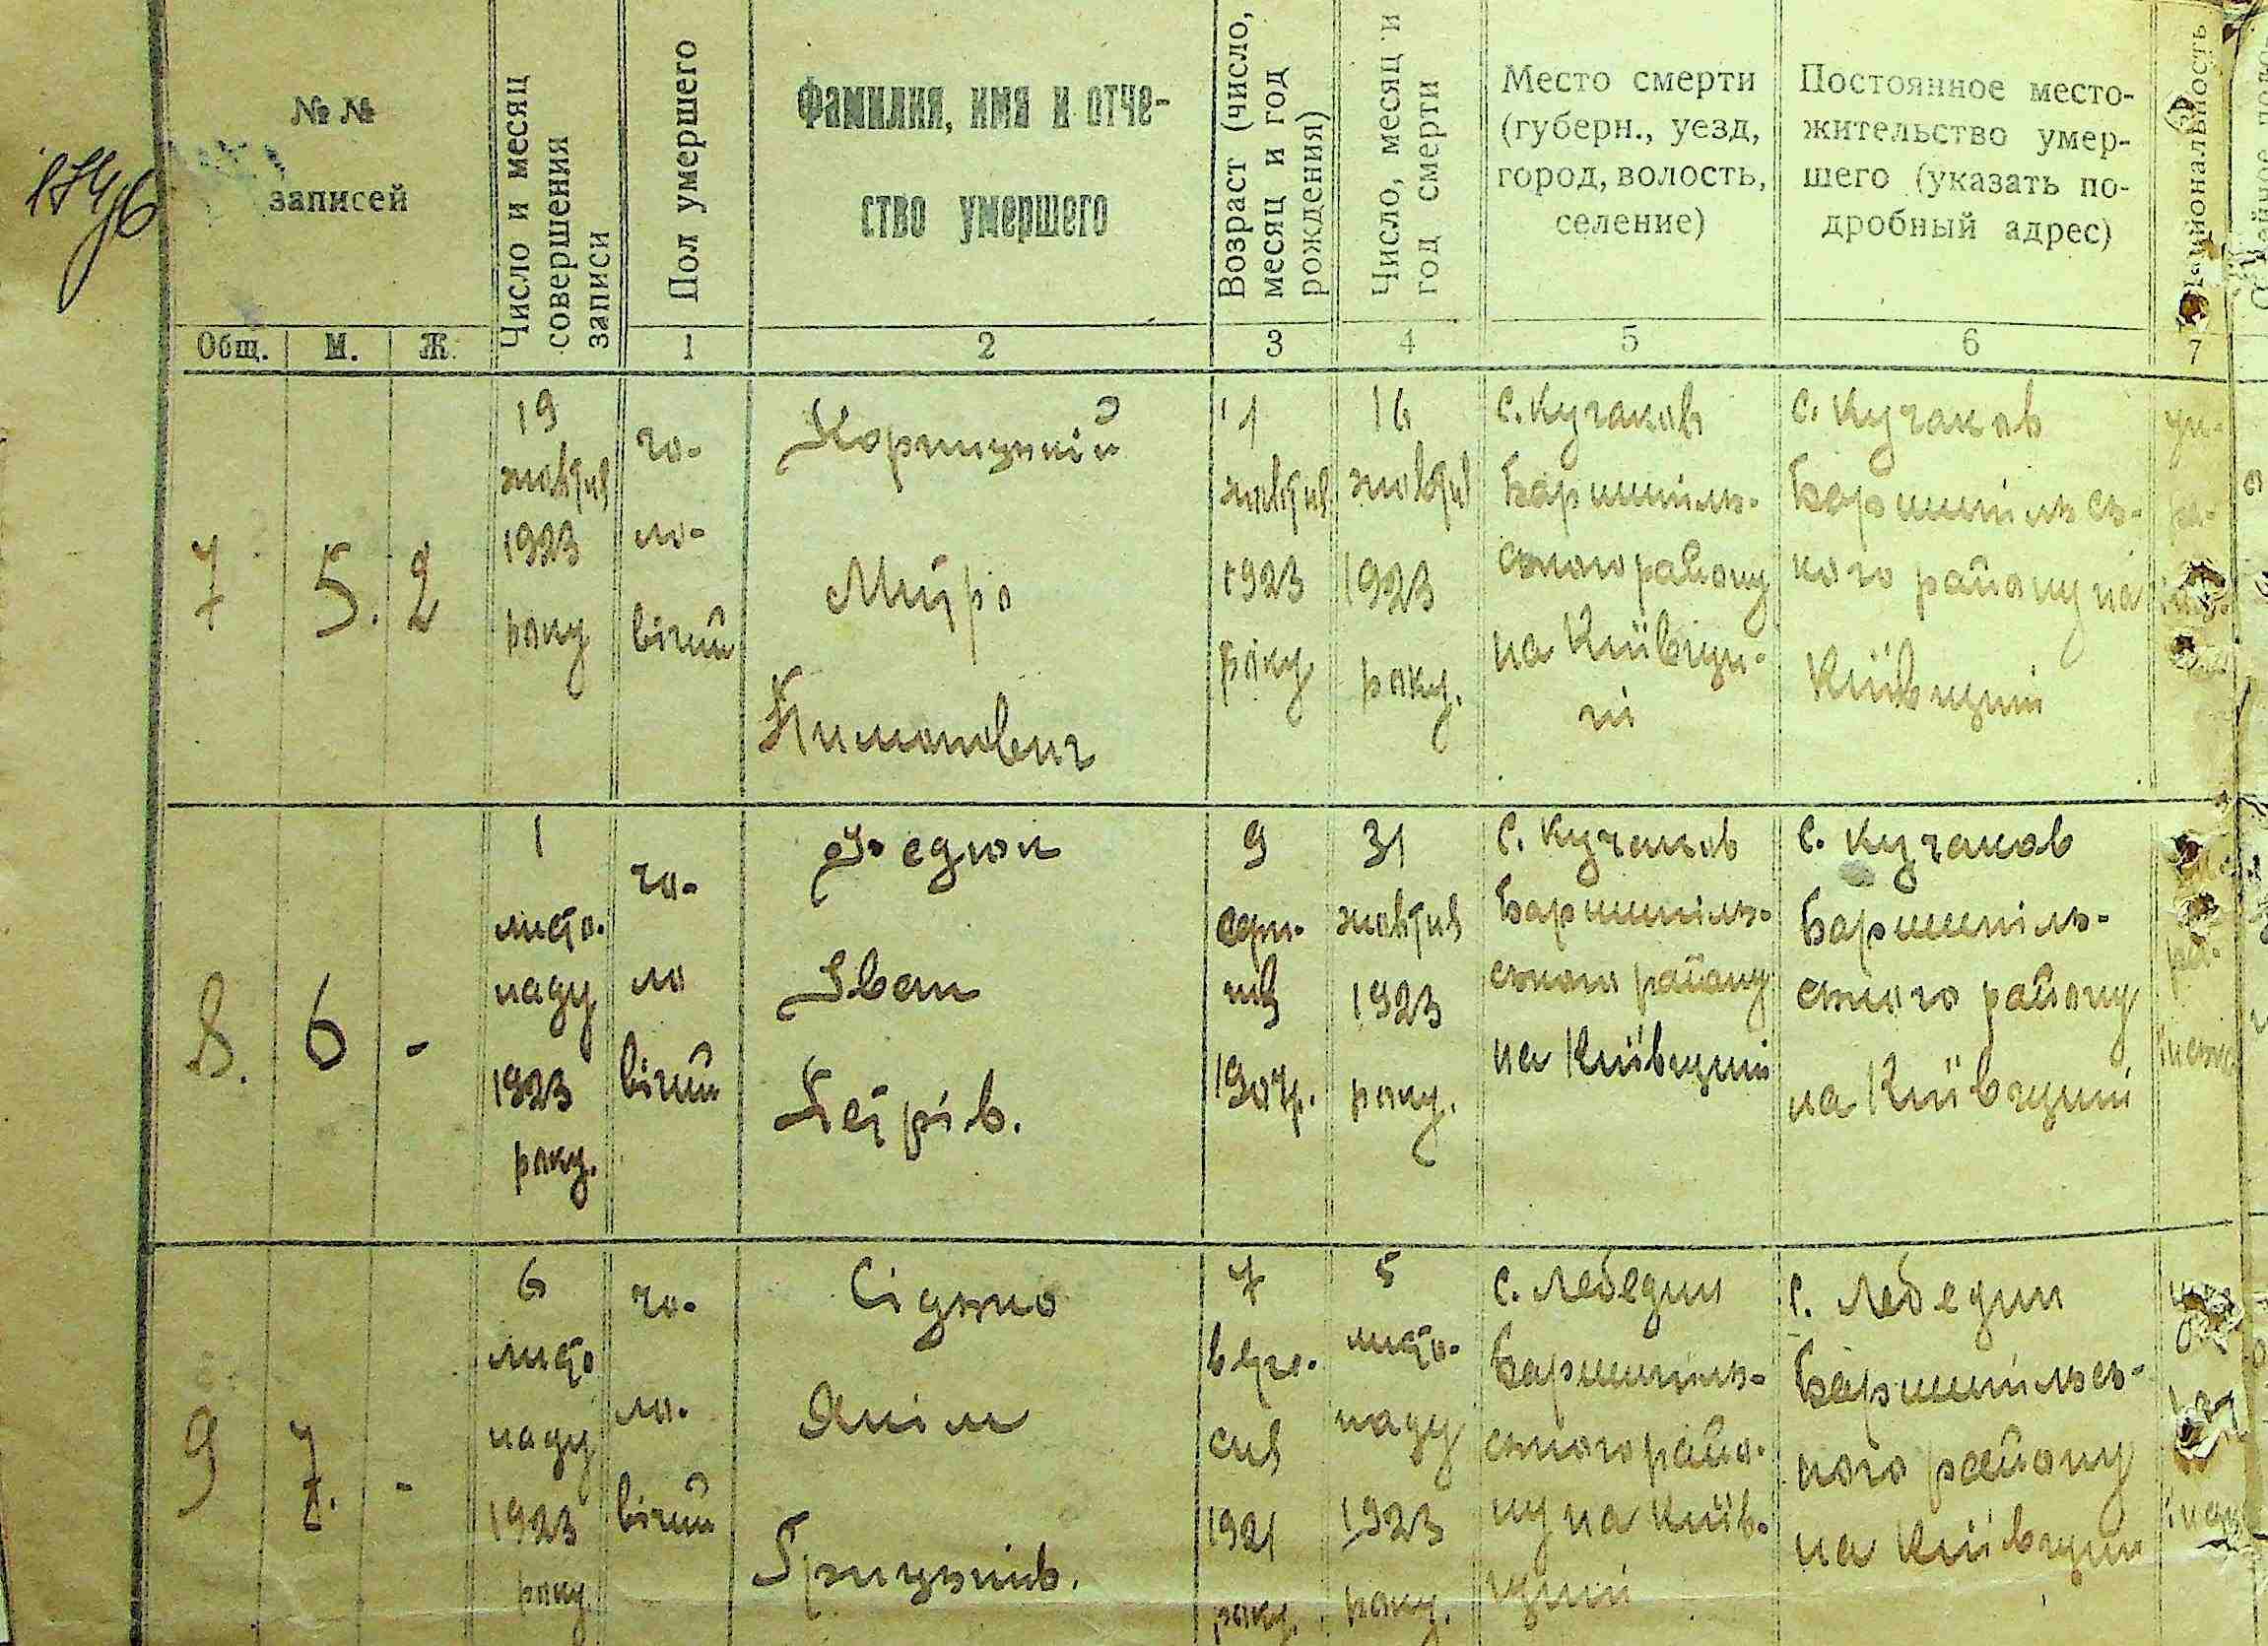 174/6
№ №
записей
Общ.
М.
Ж.
Число и месяц
совершения
записи
Пол умершего
1
Фамилия, имя и отче-
ство умершего
2
Возраст (число,
месяц и год
рождения)
3
Число, месяц и
год смерти
4
Место смерти
(губерн., уезд,
город, волость,
селение)
5
Постоянное место-
жительство умер-
шего (указать по-
дробный адрес)
6
Национальность
7
7
5.
2
19
жовтня
1923
року
чо-
ло-
вічий
Корницький
Митро
Пимонович
1
жовтня
1923
року
16
жовтня
1923
року.
с. Кучаков
Баришпіль-
ського району
на Київщи-
ні
с. Кучаков
Баришпільсь-
кого району на
Київщині
8.
6
-
1
листо-
паду
1923
року.
чо-
ло
вічий
Федюн
Іван
Петрів.
9
серп-
ня
1904р.
31
жовтня
1923
року.
с. Кучаков
Баришпіль-
ського району
на Київщині
с. Кучаков
Баришпіль-
ського району
на Київщині
9
7.
-
6
листо
паду
1923
року.
чо-
ло-
вічий
Сідько
Яким
Грицьків.
7
вере-
сня
1921
року.
5
листо-
паду
1923
року.
с. Лебедин
Баришпіль-
ського райо-
ну на Київ-
щині
с. Лебедин
Баришпільсь-
кого району
на Київщині